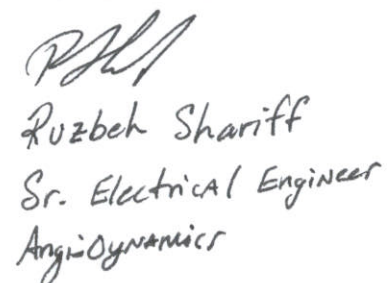 Ruzbeh Shariff
Sr. Electrical Engineer
AngioDynamics